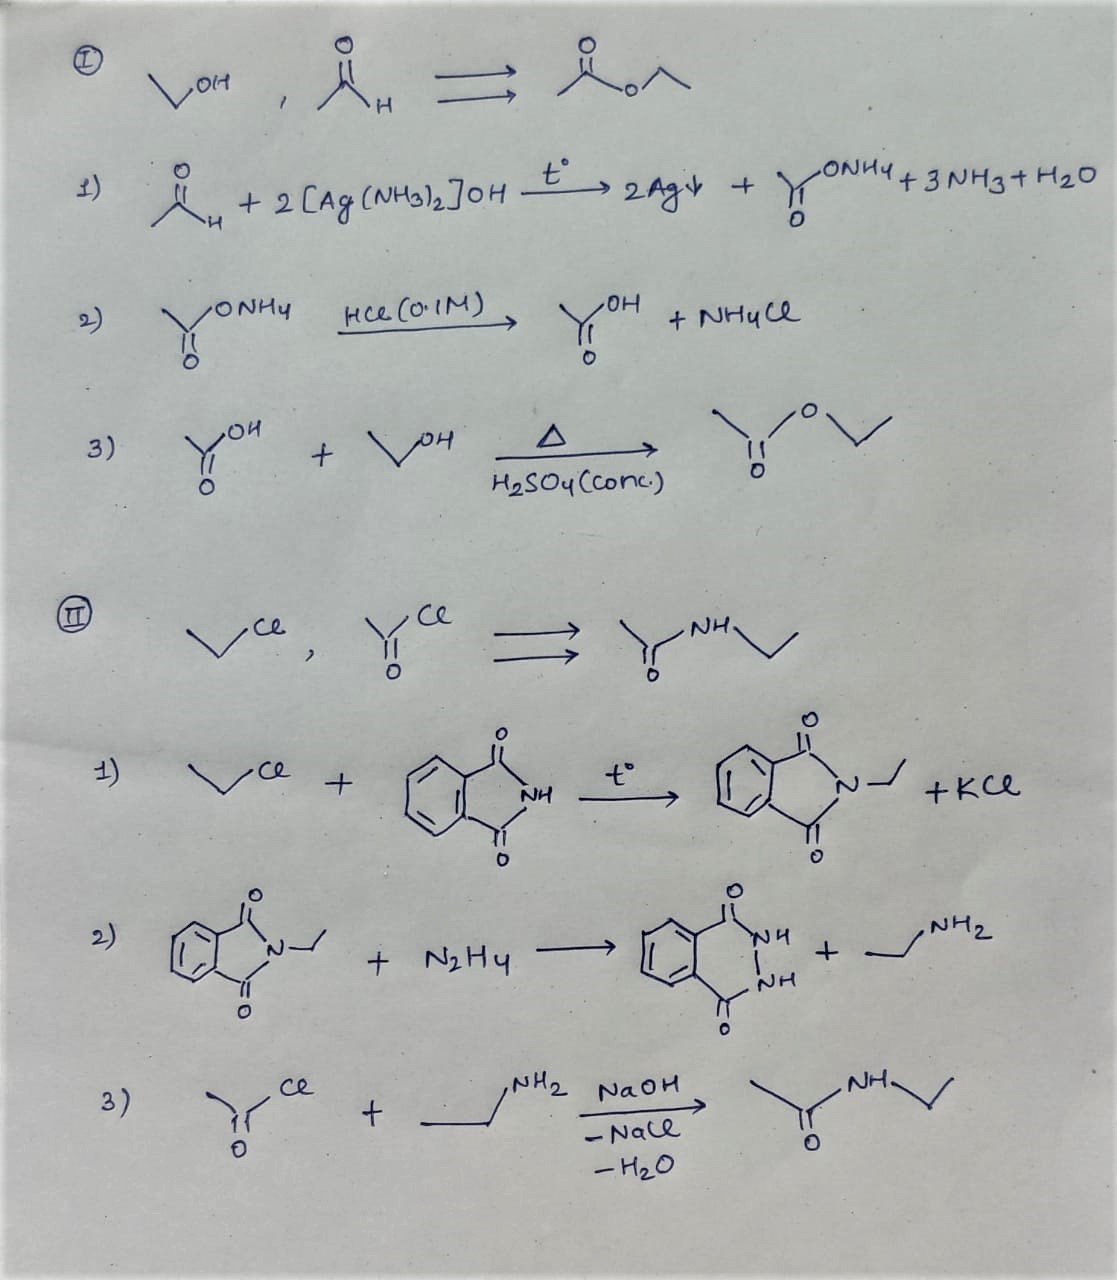 I OH , O H O O
1) O H + 2[Ag(NH3)2]OH t° 2Ag↓ + ONH4 O + 3NH3 + H2O
2) ONH4 O HCl (0.1M) OH O + NH4Cl
3) OH O + OH Δ H2SO4(conc.) O O
II Cl , Cl O NH O
1) Cl + O NH O t° O N O + KCl
2) O N O + N2H4 O NH NH O + NH2
3) Cl O + NH2 NaOH -NaCl -H2O NH O